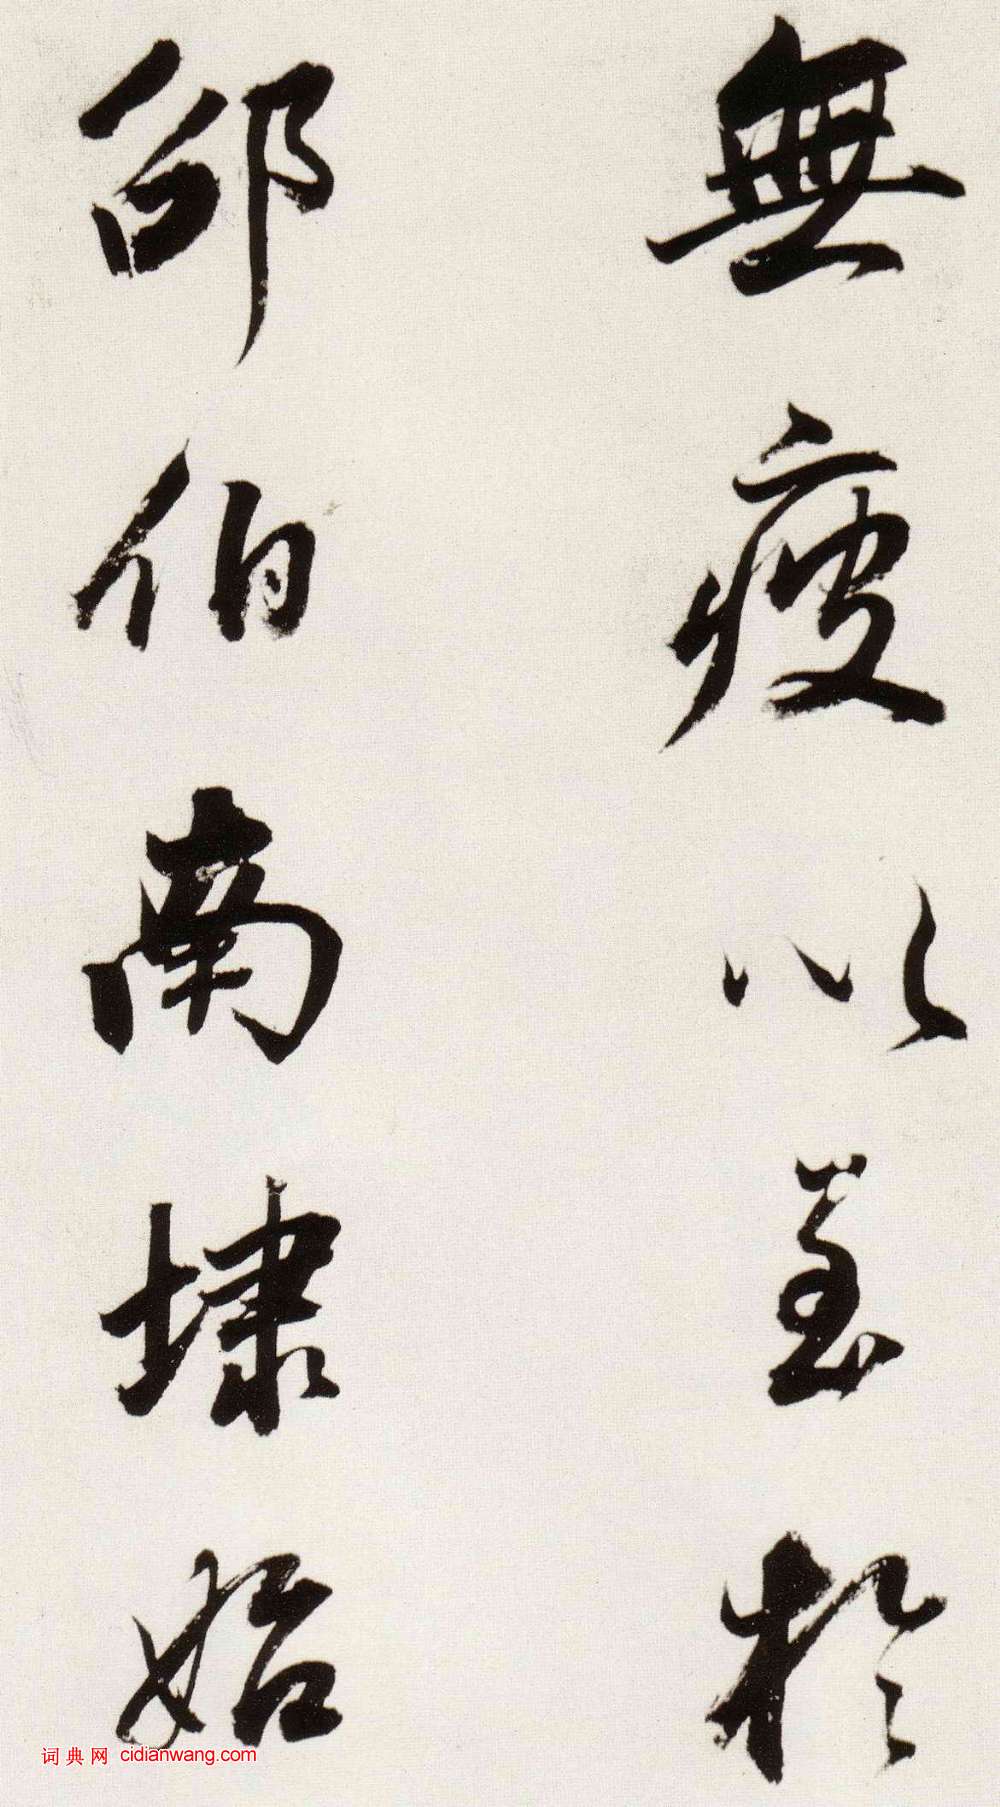 無疲以至於
邵伯南埭始
词典网 cidianwang.com